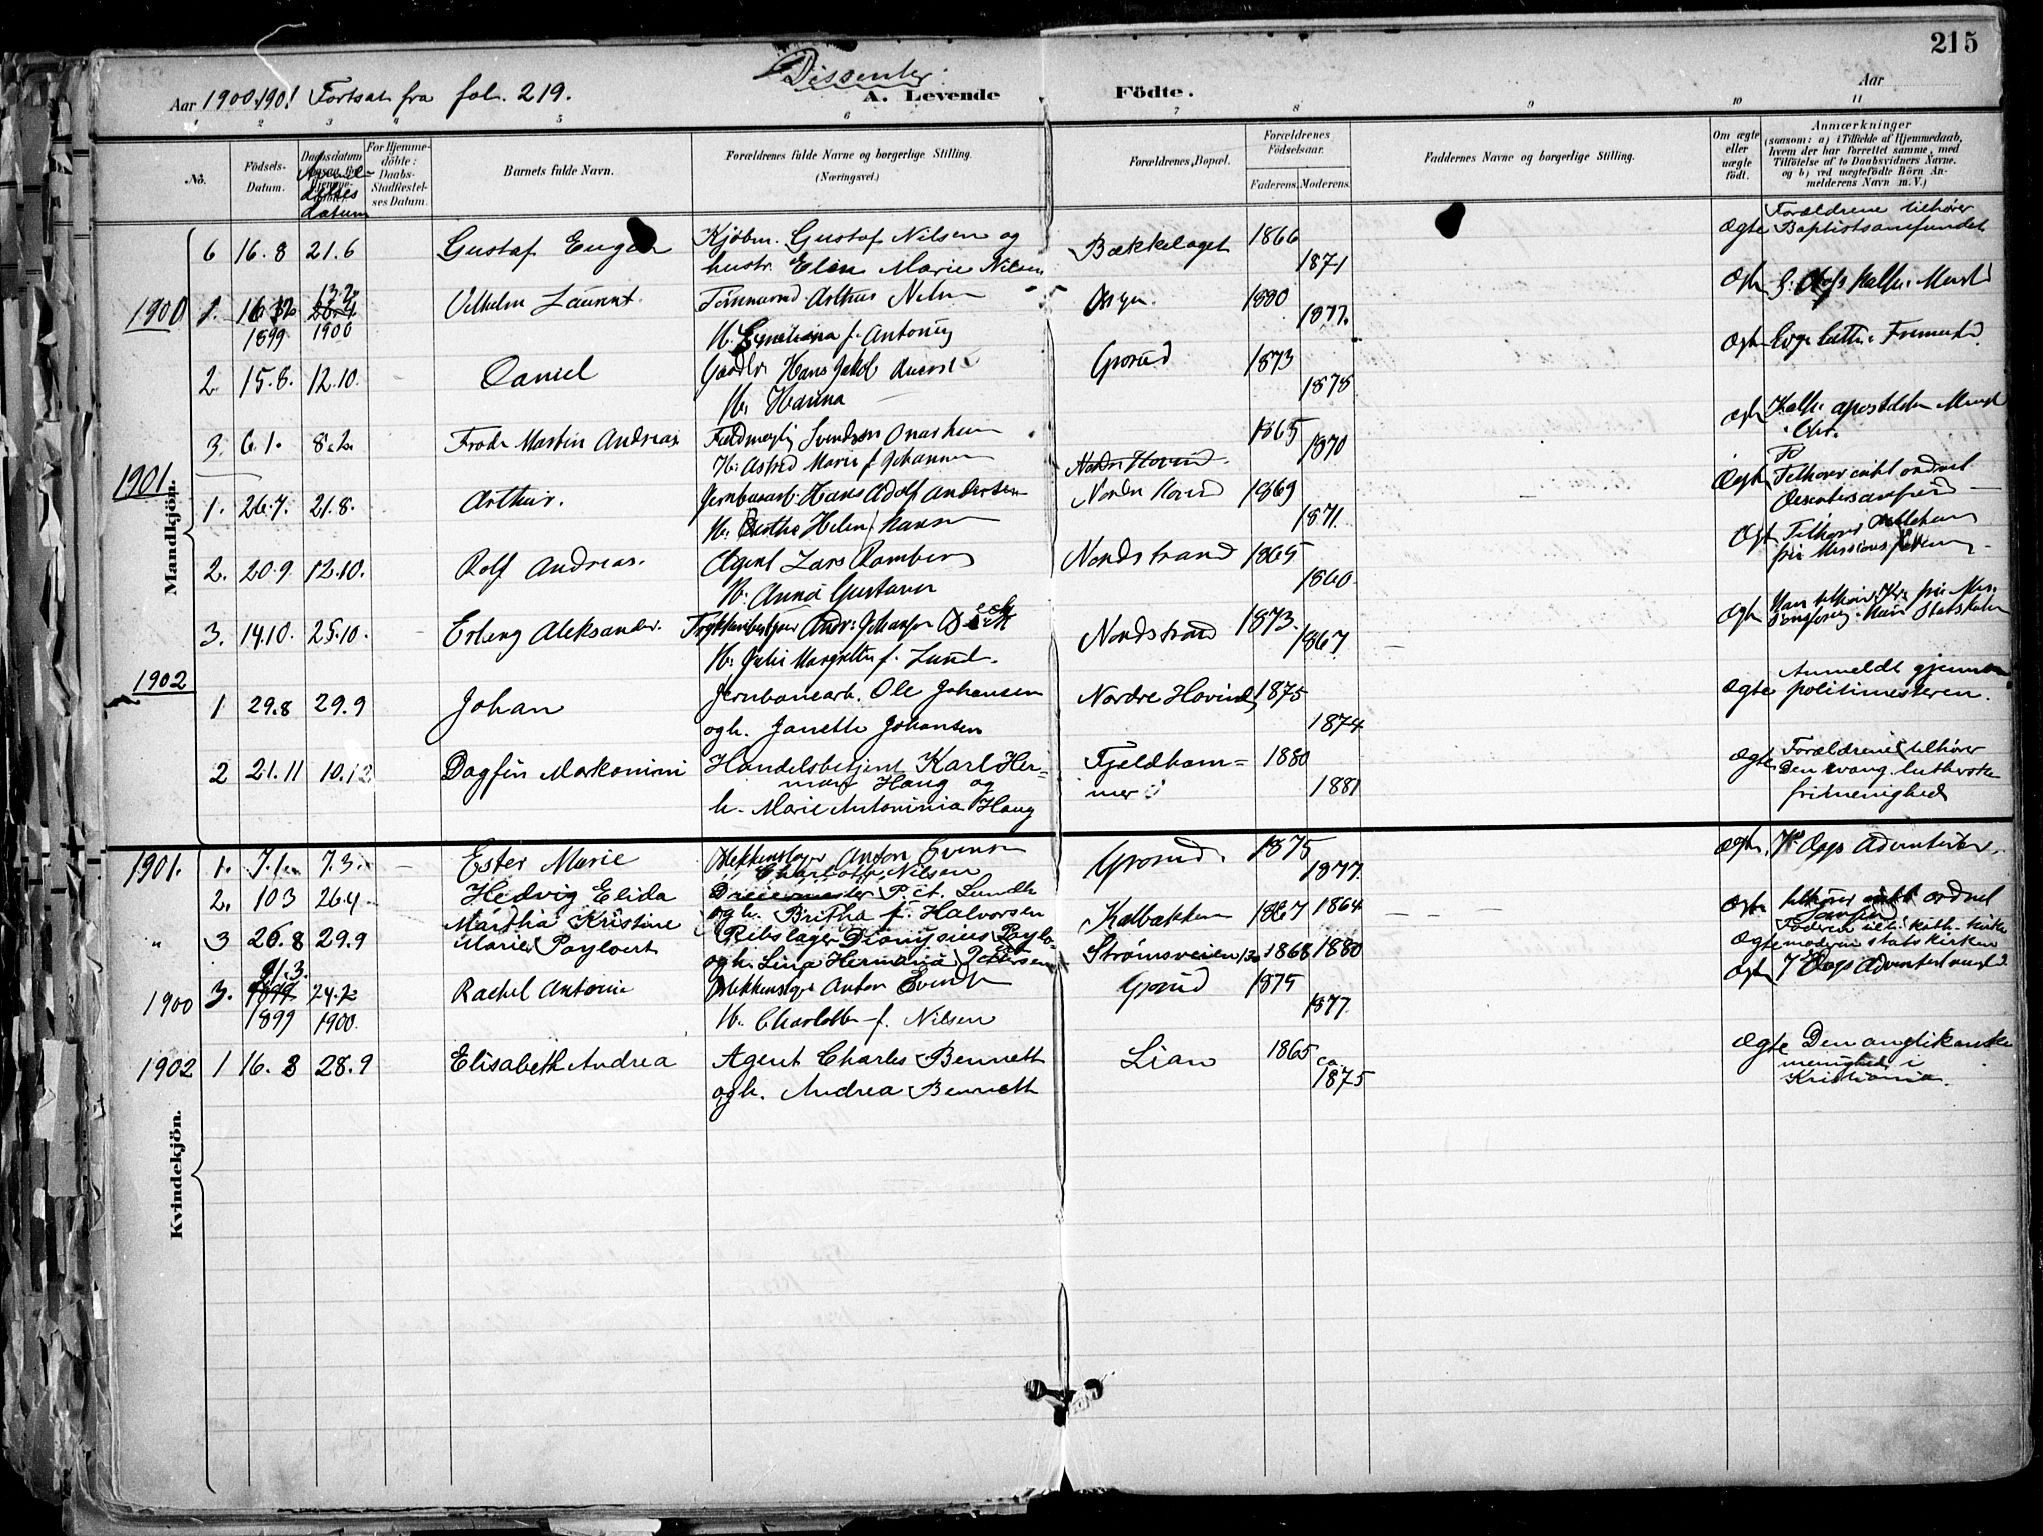 215
Dissenter.
Aar 1900.1901 Fortsat fra fol. 219.
A. Levende Födte.
Aar
1 2 3 4 5 6 7 8 9 10 11
No.
Födsels-Datum.
Daabsdatum
Anmeldelses datum
For Hjemmedöbte: Daabs-Stadfæstelses Datum.
Barnets fulde Navn.
Forældrenes fulde Navne og borgerlige Stilling.
(Næringsvei.)
Forældrenes Bopæl.
Forældrenes Födselsaar.
Faderens. Moderens.
Faddernes Navne og borgerlige Stilling.
Om ægte eller uægte födt.
Anmærkninger
(saasom: a) i Tilfælde af Hjemmedaab,
hvem der har forrettet samme, med
Tilföielse af to Daabsvidners Navne.
og b) ved uægtefödte Börn Anmelderens Navn m. V.)
Mandkjön.
6 16.8 21.6 Gustaf Eugen Kjöbm. Gustaf Nilsen og Bækkelaget 1866 ægte Forældrene tilhører
hustr. Elen Marie Nilsen 1871 Baptistsamfundet
1900 1. 16.12 1899 13.2 1900 Vilhelm Laurent. Arthur Nilsen 1880 Ægte
H. f. Antonius 1877.
2. 15.8. 12.10. Daniel Gaardbr. Hans Jakob Grorud 1873 Ægte
H. Hanna 1878
3. 6.1. 8.2. Frode Martin Andreas. Svendsen Onasheim 1865 ægte Kath. apostolske Menigh.
H. Astrid Marie f. Johannesen Nordre Hovind. 1870
1901
1. 26.7. 21.8. Arthur. Jernbanearb. Hans Adolf Andersen Nordre Hovind 1869 Ægte Tilhører intet ordnet
H. Bertha Helene Hansen 1871. Dissentersamfund
2. 20.9 12.10. Rolf Andreas. Agent Lars Ramberg Nordstrand 1865 Ægte Tilhører
H. Anna Gustava 1860.
3. 14.10. 25.10. Erling Aleksander. Andr. Johansen Nordstrand 1873. Ægte
H. Julie Margrethe f. Lund. 1867
1902
1 29.8 29.9 Johan Jernbanearb. Ole Johansen Nordre Hovind 1875 Ægte Anmeldt gjennem
ogh. Janette Johansen 1874 politimesteren.
2 21.11 10.12 Dagfin Markonini Handelsbetjent Karl Her- Fjeldham- 1880 Ægte Forældrene tilhører
man Haug og mer 1881 Den evang. lutherske
h. Marie Antoninia Haug frimenighed
Kvindekjön.
1901. 1. 7.1. 7.3. Ester Marie Blikkenslager Anton Evensen Grorud. 1875 ægte. 7de Dags Adventister.
Charlotte Nilsen 1877.
2. 10 3 26.4. Hedvig Elida Dreiermester P. Ct. Lundh Kalbakken 1867 1864 ægte tilhører intet ordnet
ogh. Britha f. Halvorsen Samfund
" 3 26.8 29.9 Martha Kristine Rebslager Dionysius Paylo- Strømsveien 1868 1880 Ægte Faderen tilh. kath. kirke
Marie Paylovert ogh. Lina Hermania Pettersen moderen statskirken
1900 3. 21.3. 1899 24.2 1900. Rachel Antonie Blikkenslager Anton Evensen Grorud 1875 Ægte 7 Dags Adventist
H. Charlotte f. Nilsen 1877.
1902 1 16.3 28.9 Elisabeth Andrea Agent Charles Bennett Lian 1865 Ægte Den anglikanske
ogh. Andrea Bennett ca. 1875 menighed i
Kristiania.